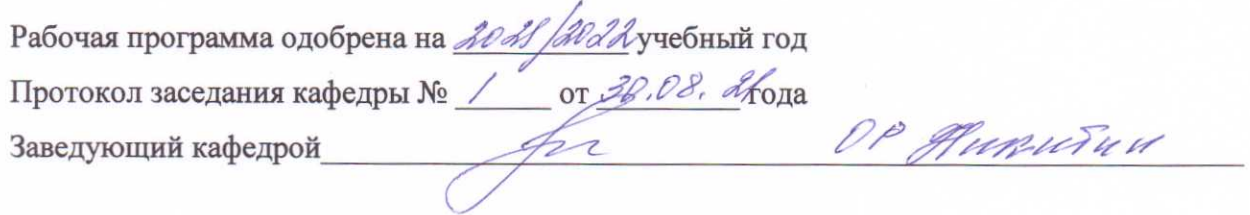 Рабочая программа одобрена на 2021/2022 учебный год
Протокол заседания кафедры № 1 от 30.08.21 года
Заведующий кафедрой ОР Никитин